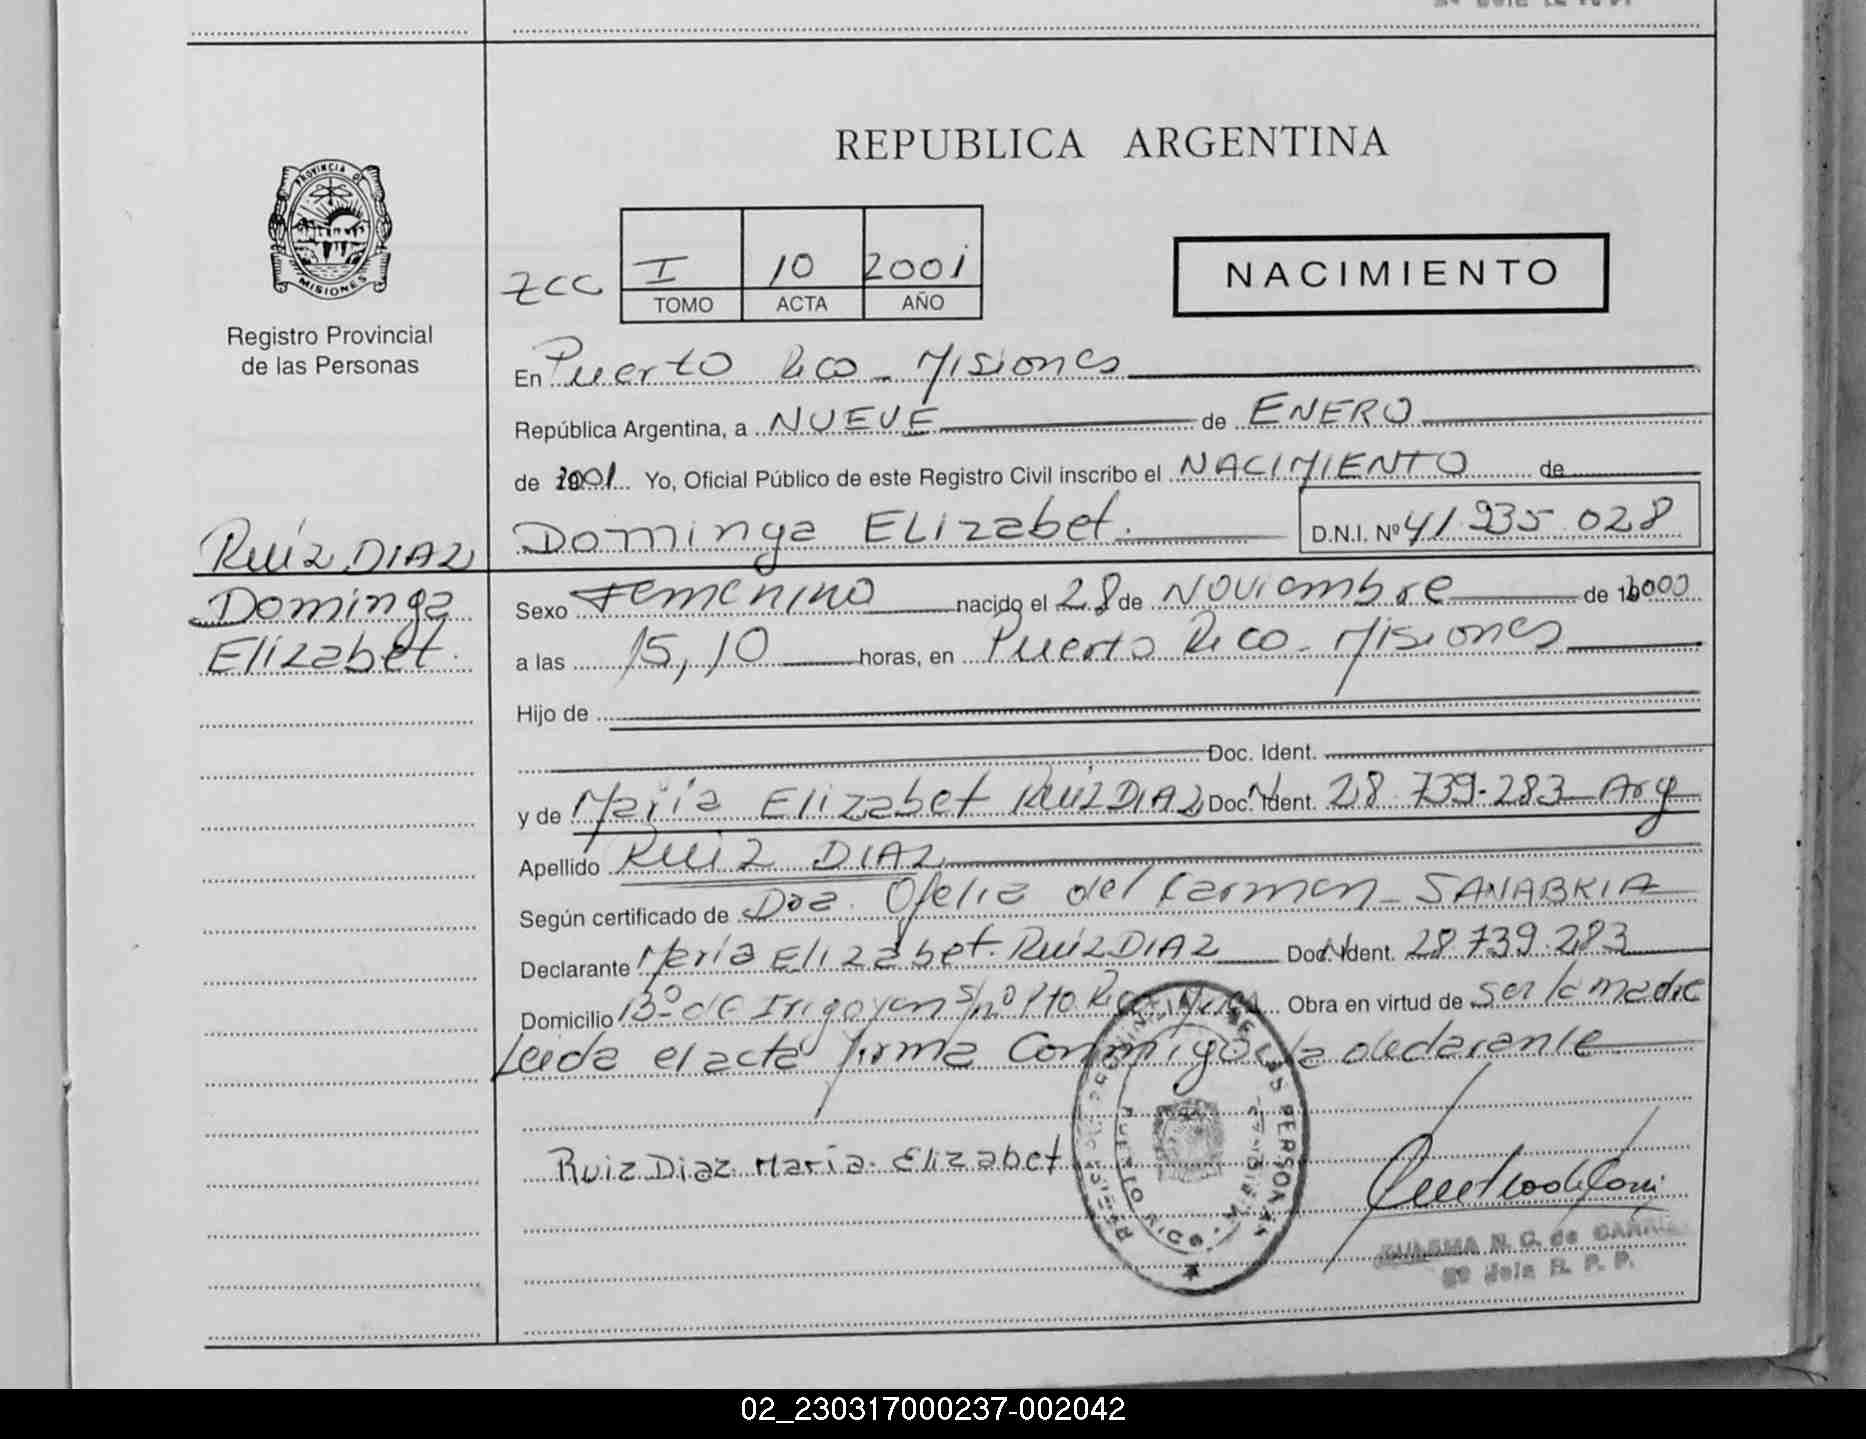 PROVINCIA DE
MISIONES
Registro Provincial
de las Personas
Ruíz DIAZ
Dominga
Elizabet.
REPUBLICA ARGENTINA
I 10 2001
TOMO ACTA AÑO
NACIMIENTO
En Puerto Rico - Misiones
República Argentina, a NUEVE de ENERO
de 2001 Yo, Oficial Público de este Registro Civil inscribo el NACIMIENTO de
Dominga ELizabet. D.N.I. Nº 41.935.028
Sexo Femenino nacido el 28 de Noviembre de 2000
a las 15,10 horas, en Puerto Rico - Misiones
Hijo de
Doc. Ident.
y de María Elizabet Ruíz DIAZ Doc. Ident. 28.739.283 Arg
Apellido Ruiz DIAZ
Según certificado de Dra. Ofelia del Carmen - SANABRIA
Declarante María Elizabet. Ruíz DIAZ Doc. Ident. 28.739.283
Domicilio Bº de Irigoyen s/nº Pto. Rico, Obra en virtud de ser la madre
Leida el acta firma Conmigo la declarante
Ruiz Diaz María Elizabet
PUERTO RICO
N. C. de
R. P. P.
02_230317000237-002042